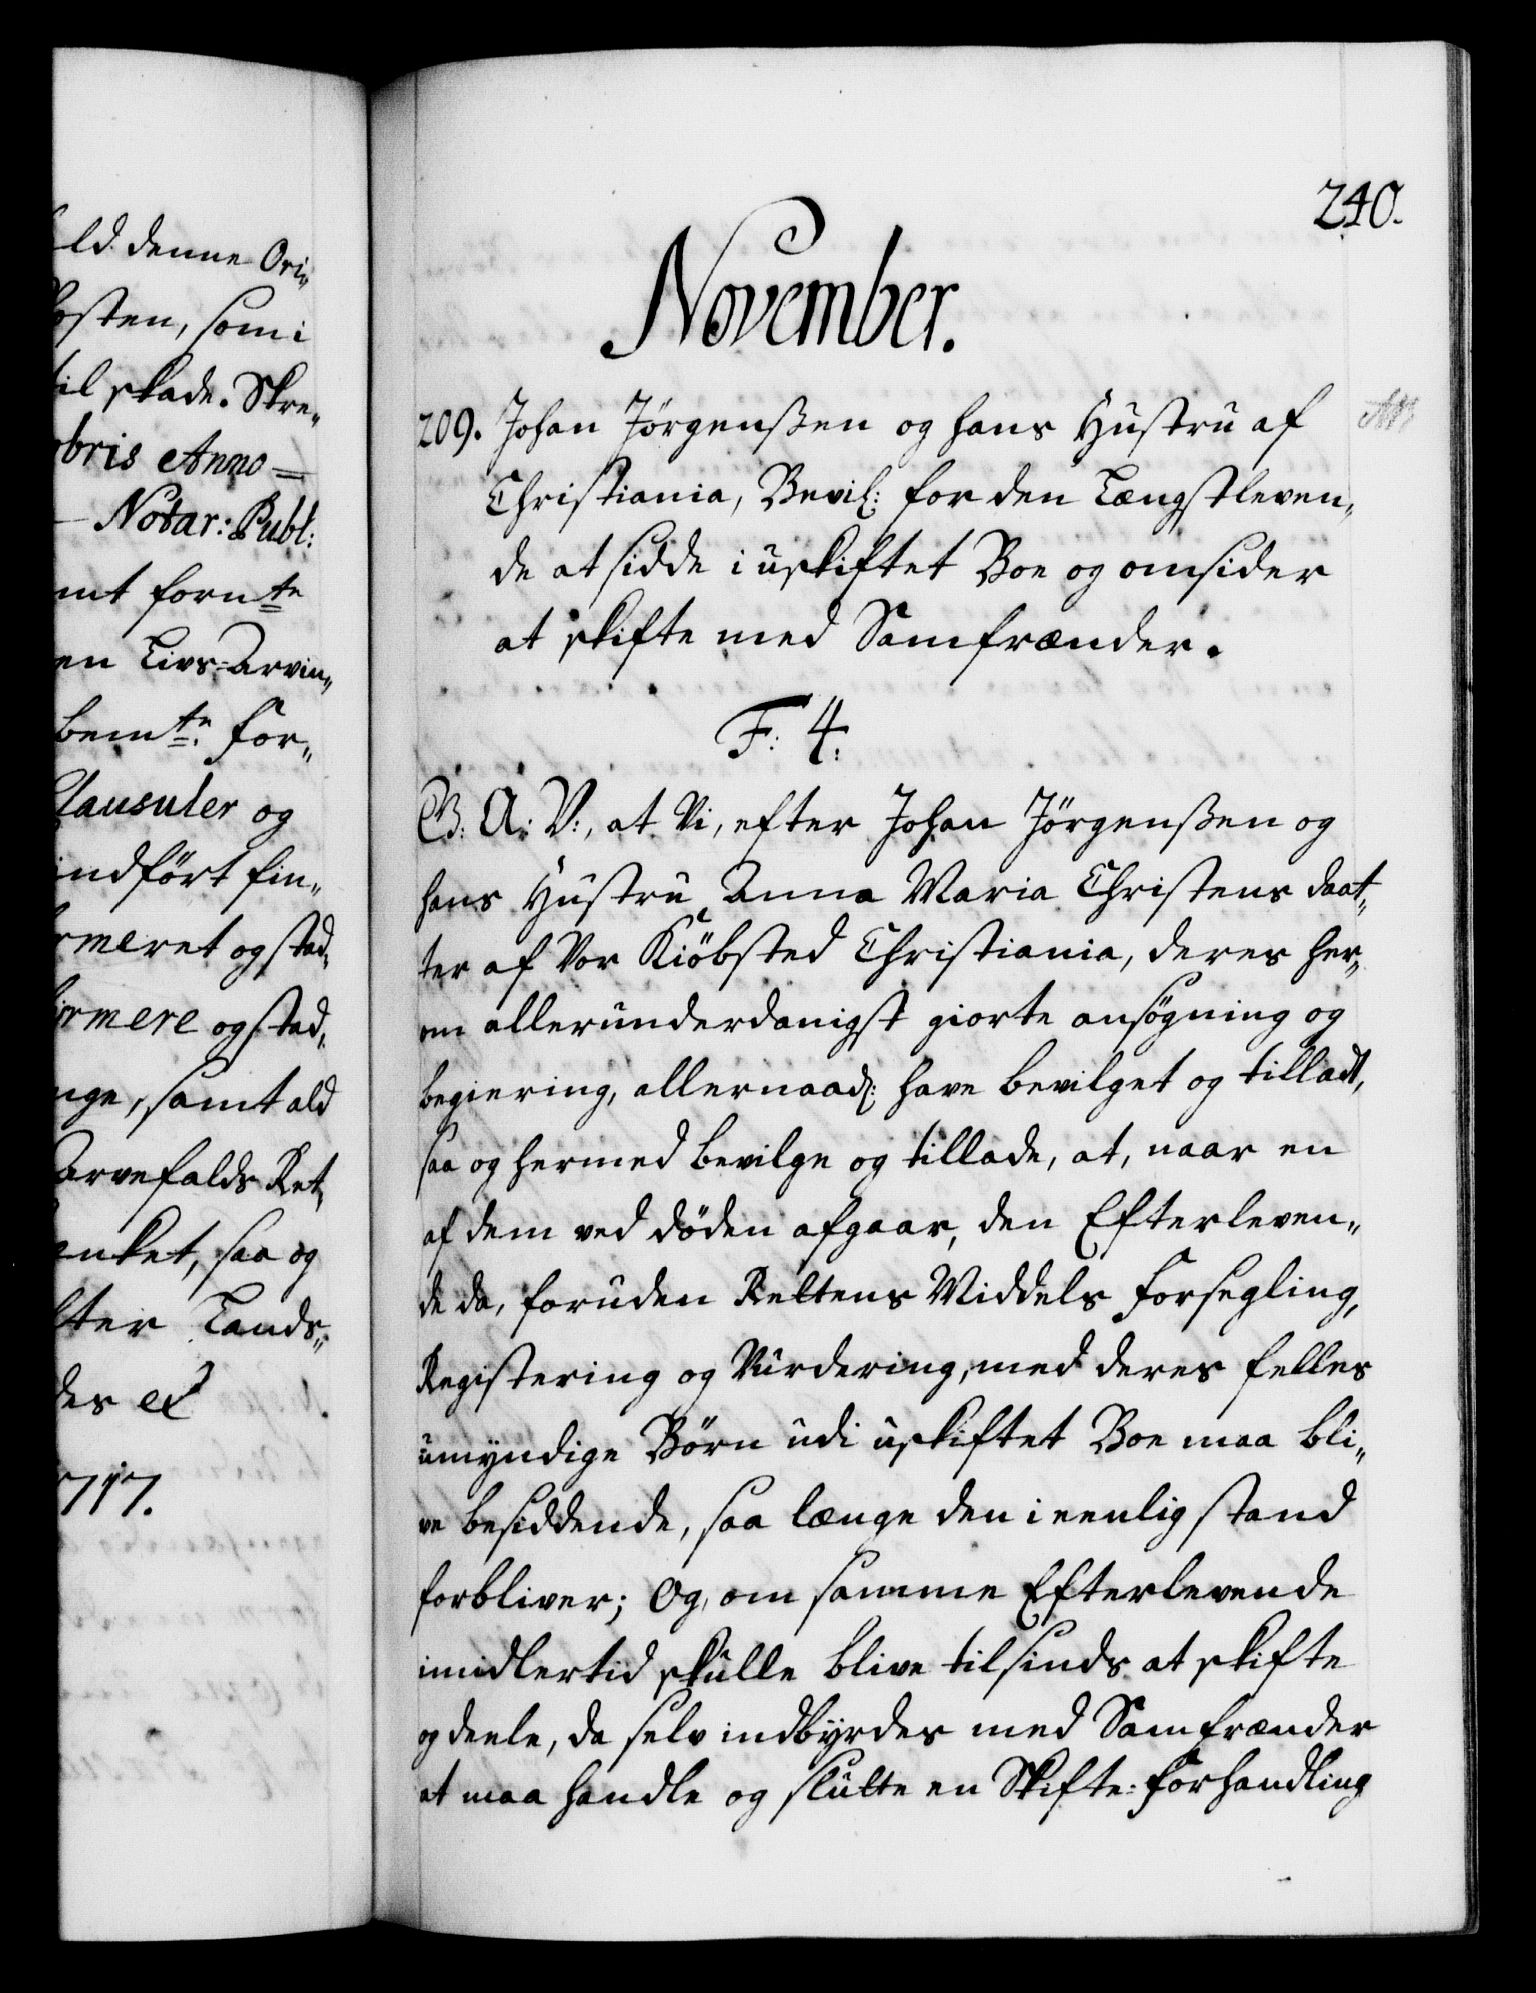 ld denne Ori„
osten, som i
til skade. Skre„
obris Anno =
— Notar: Publ:
mt fornte
en Livs-Arvin„
bemte for„
Clausuler og
indført fin„
rmeret og stad„
firmere og stad„
nge, samt ald
Arvefalds Ret,
enket, saa og
lter Lands„
des ex
1717.
240.
November.
209. Johan Jörgenßen og hans Hustru af
Christiania, Bevil: for den Længstleven„
de at sidde i uskiftet Boe og omsider
at skifte med Samfrænder.
F: 4:
G: A: V:, at Vi, efter Johan Jörgenßen og
hans Hustru Anna Maria Christens daat„
ter af Vor Kiöbsted Christiania, deres her„
om allerunderdanigst giorte ansögning og
begiering, allernaad: have bevilget og tilladt,
saa og hermed bevilge og tillade, at, naar en
af dem ved döden afgaar, den Efterleven„
de da, foruden Rettens Middels Forsegling,
Registering og Vurdering, med deres felles
umyndige Börn udi uskiftet Boe maa bli„
ve besiddende, saa længe den i eenlig stand
forbliver; Og, om samme Efterlevende
imidlertid skulle blive tilsinds at skifte
og deele, da selv indbyrdes med Samfrænder
at maa handle og slutte en Skifte-Forhandling